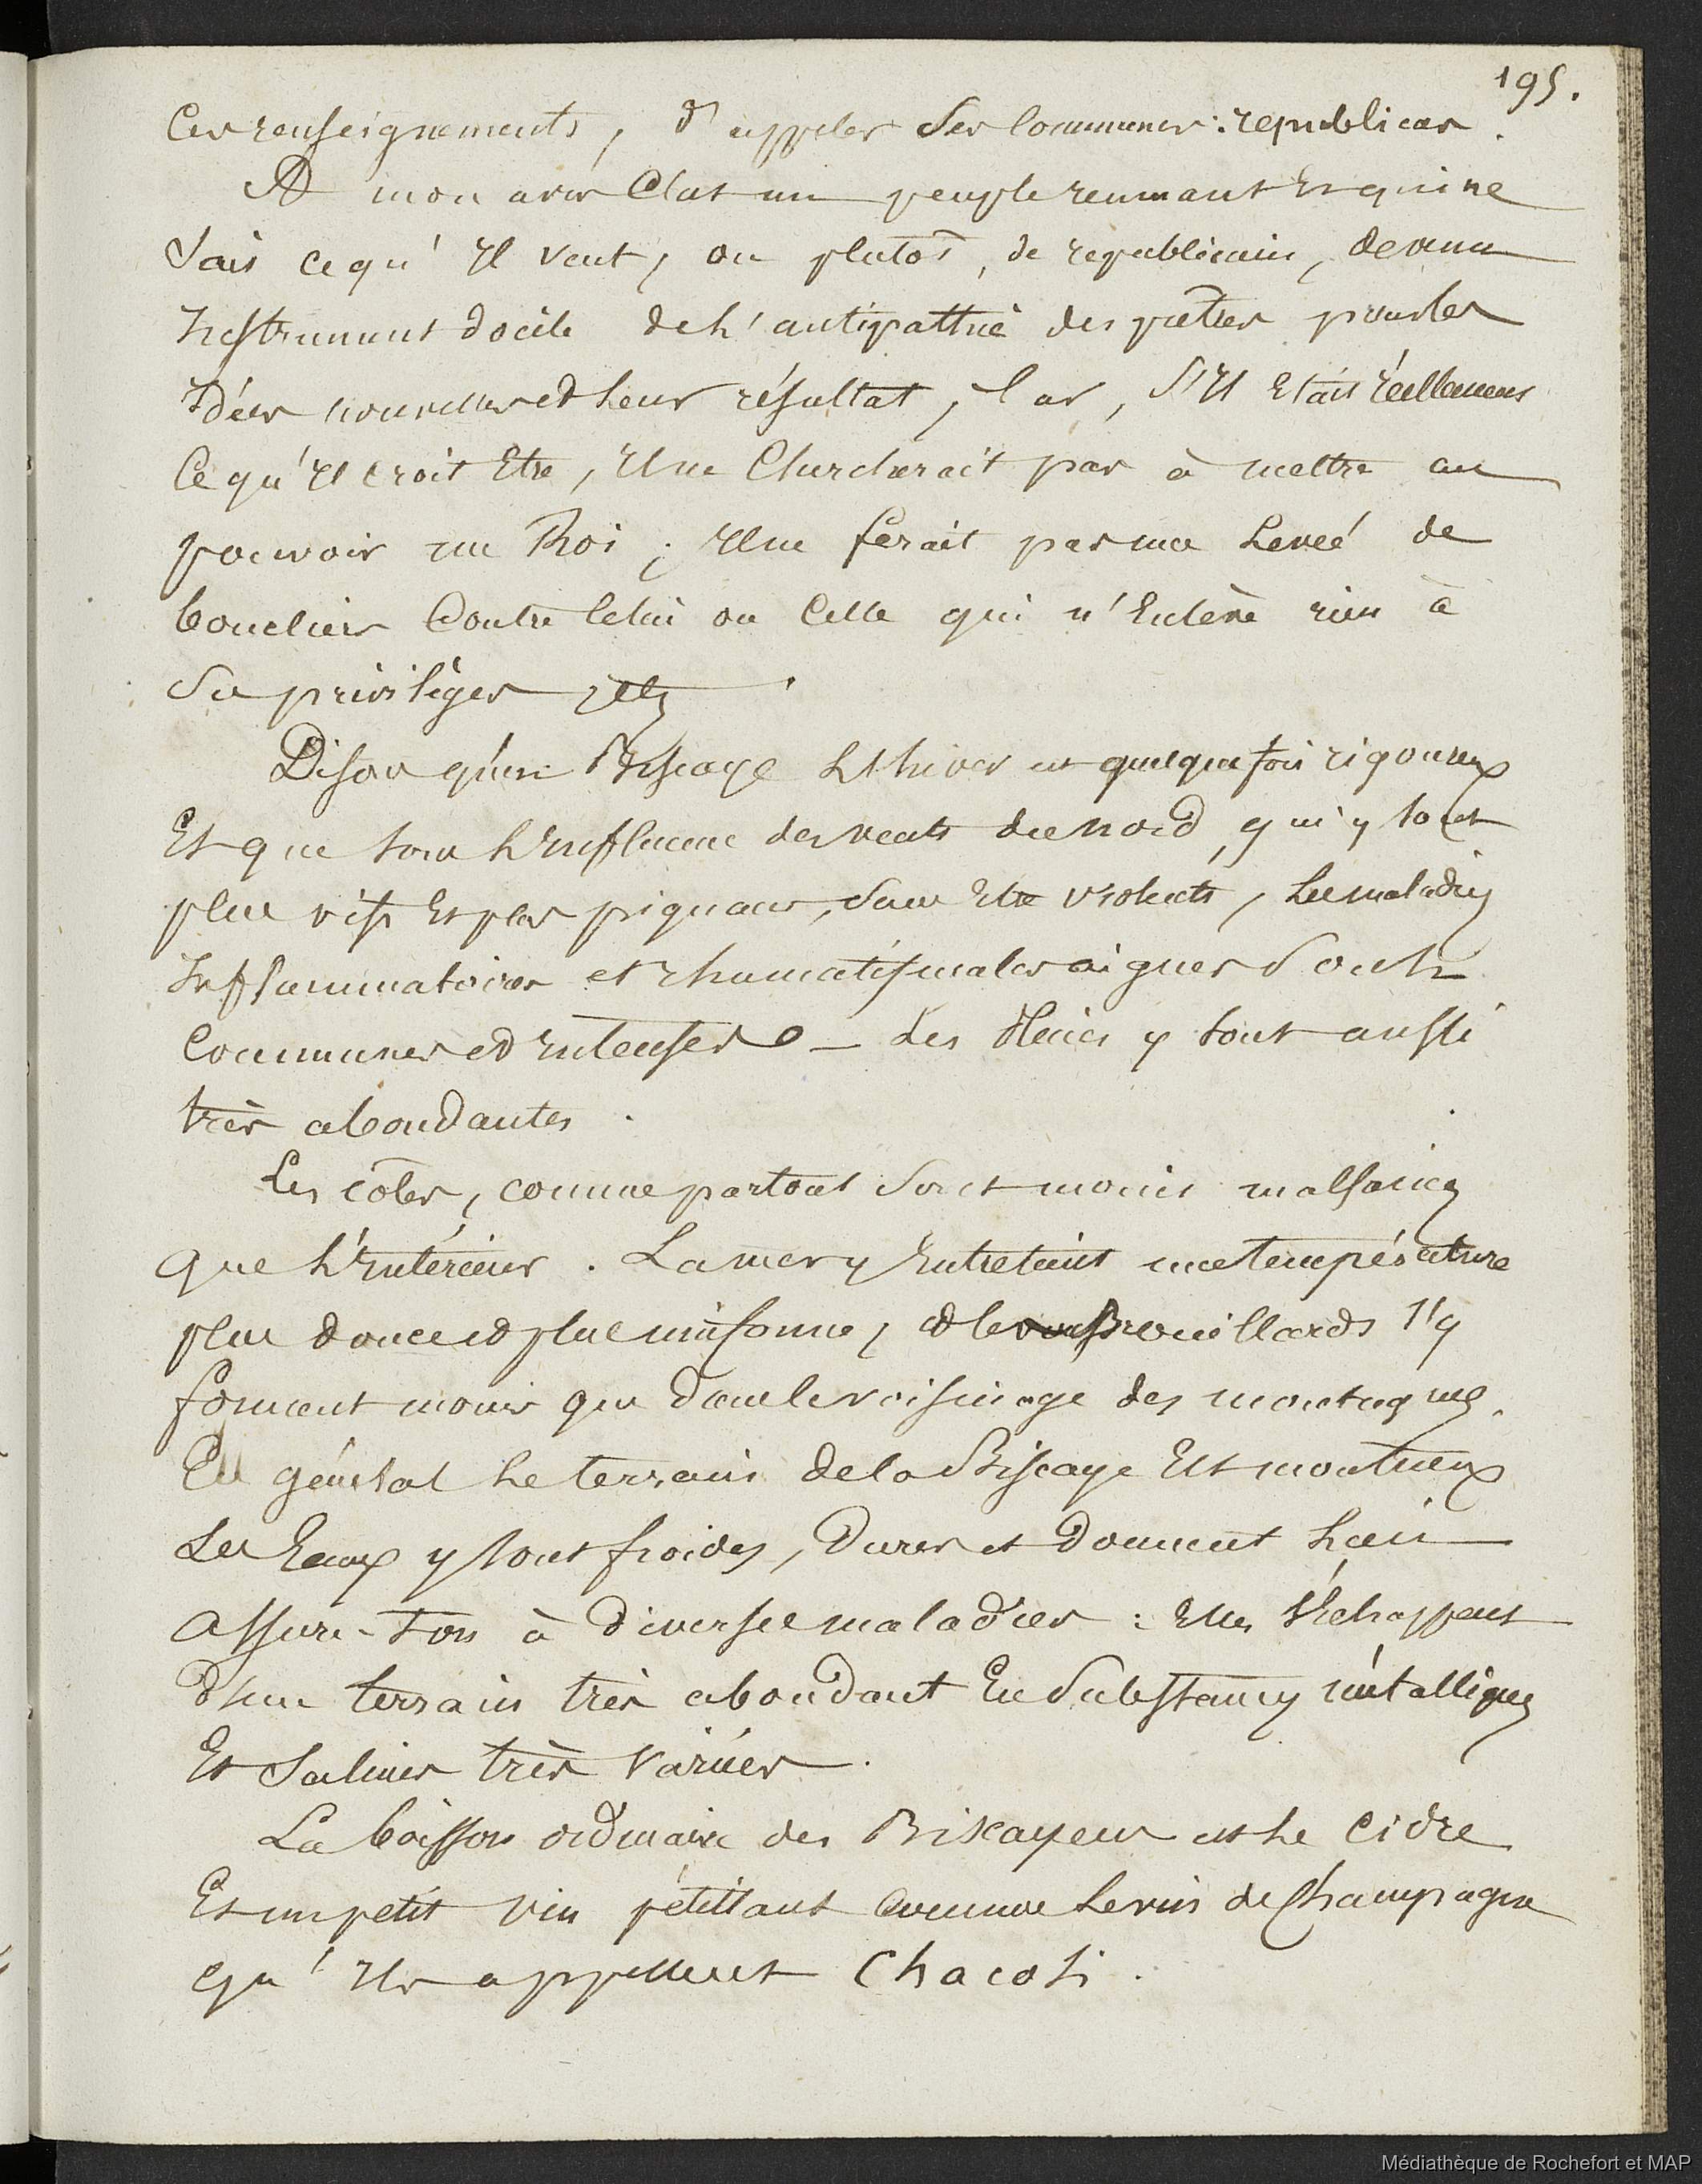 195.
Ces renseignements, d'appeler ses communes: republicas.
A mon avis C'est un peuple remuant Et qui ne
Sais ce qu'Il veut, ou plutôt, de republicain, devenu
Instrument docile de L'antipathie des prêtres pour les
Idées nouvelles et Leur résultat, Car, S'Il Etait réellement
Ce qu'Il croit Etre, Il ne Chercherait pas à mettre au
pouvoir un Roi; Il ne ferait pas une Levée de
bouclier Contre Celui ou Celle qui n'Enlève rien à
Ses privilèges
Disons qu'en Biscaye L'hiver est quelquefois rigoureux
Et que sous L'Influence des vents du nord, qui y sont
plus vifs Et plus piquans, sans Etre violents, Les maladies
Inflammatoires et rhumatismales aigues Sont
Communes et Intenses — Les Pluies y sont aussi
très abondantes.
Les côtes, comme partout Sont moins malsaines
que L'Intérieur. La mer y Entretient une température
plus douce et plus uniforme, et les Brouillards s'y
forment moins que dans le voisinage des montagnes.
En général Le terrain de la Biscaye Est montueux
Les Eaux y sont froides, Dures et Donnent Lieu
assure-t-on à diverses maladies: Elles S'échappent
d'un terrain très abondant En Substances métalliques
Et Salines très Variées.
La boisson ordinaire des Biscayens est Le Cidre
Et un petit vin pétillant Comme Le vin de Champagne
qu'Ils appellent Chacoli.
Médiathèque de Rochefort et MAP